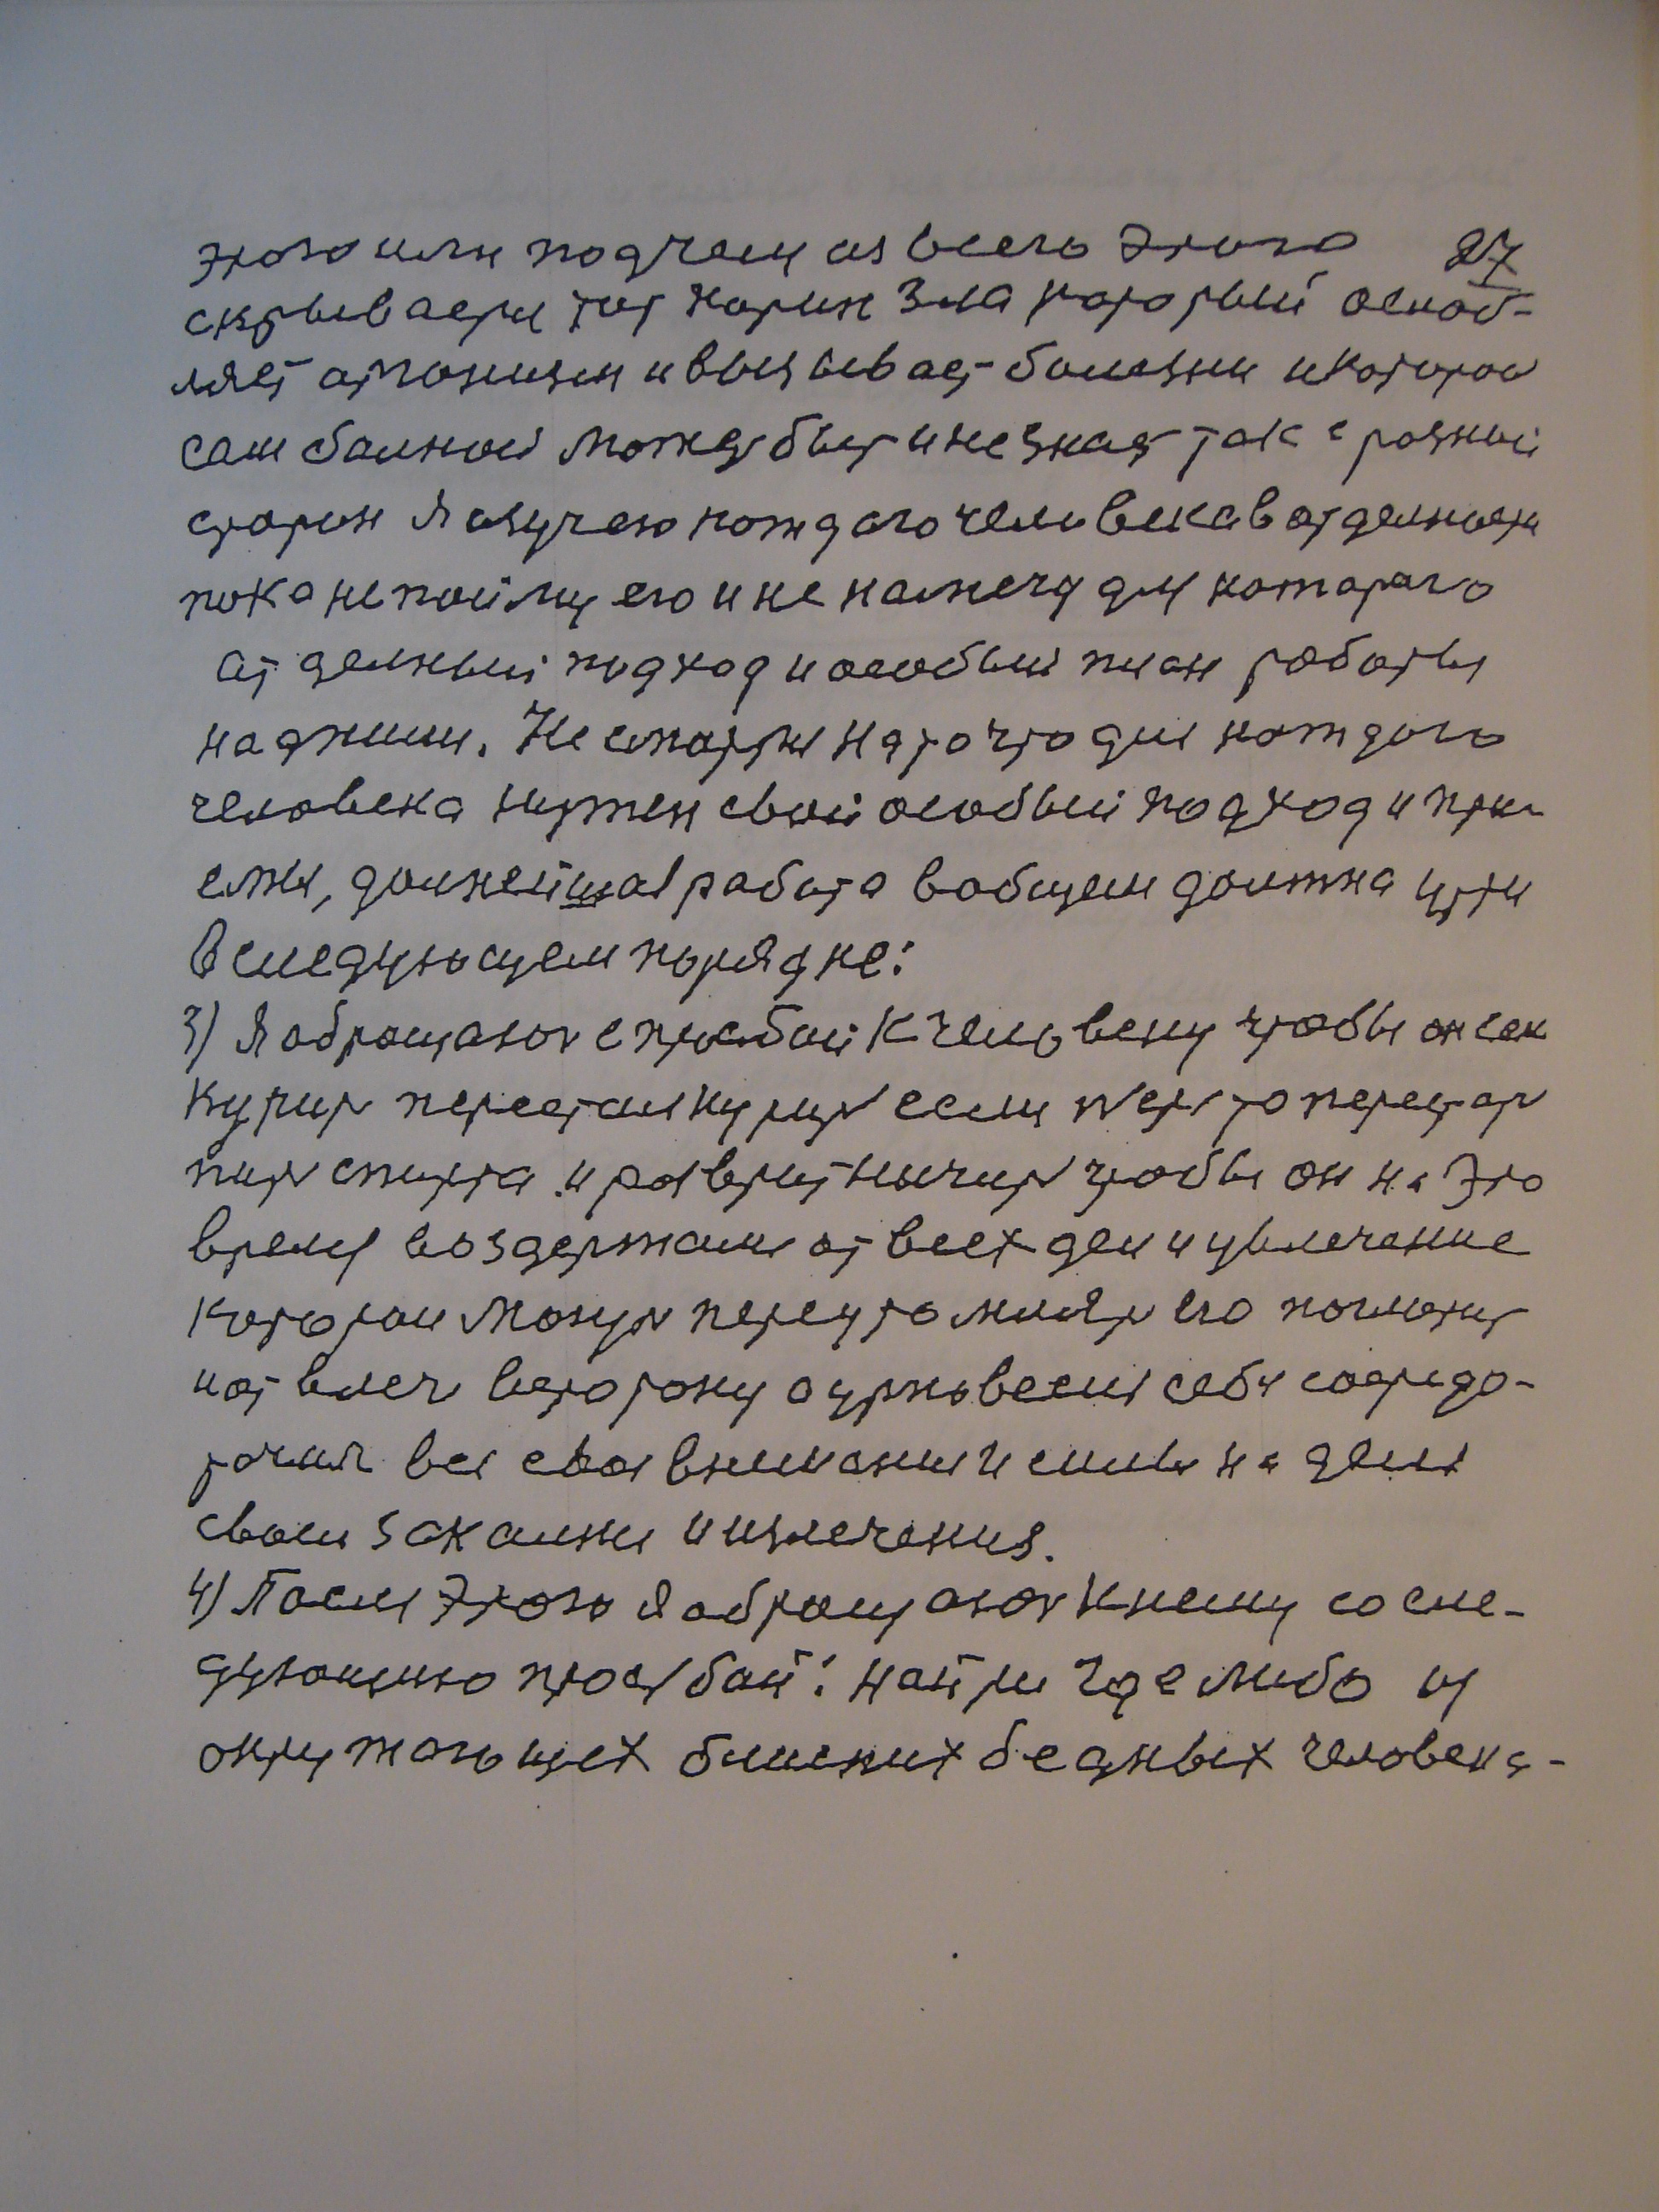 этого или под чем из всего этого 27
скрываетси тот корин Зла который ослаб-
ляет аргонизм и вызывает болезни и которой
сам балной можед быт и не знает так с розный
старон Я изучею кождого человека в отделности
пока не пойму его и не намечу дли которого
атделный подход и особый план роботы
над ними. Не смотри на то что дли кождого
человека нужен свой особый подход и при-
емы, далнейшая работа вобщем должна итти
в следующем порядке:
3) Я обращаюсь с прозбай к человеку чтобы он если
курит перестал курит если пет то перестат
пит спирта и розврат чтобы он на Это
времи воздержалси от всех дел и увлечение
которои могут переутомлят его
и отвлеч в сторону а уровновеси себи сосредо-
точил все свои внимании и силы на дели
своеи закалки и излечения.
4) После Этого Я обращаюсь к нему со сле-
дующию прозбай: найти где либо из
окружающех ближних бедных человека-